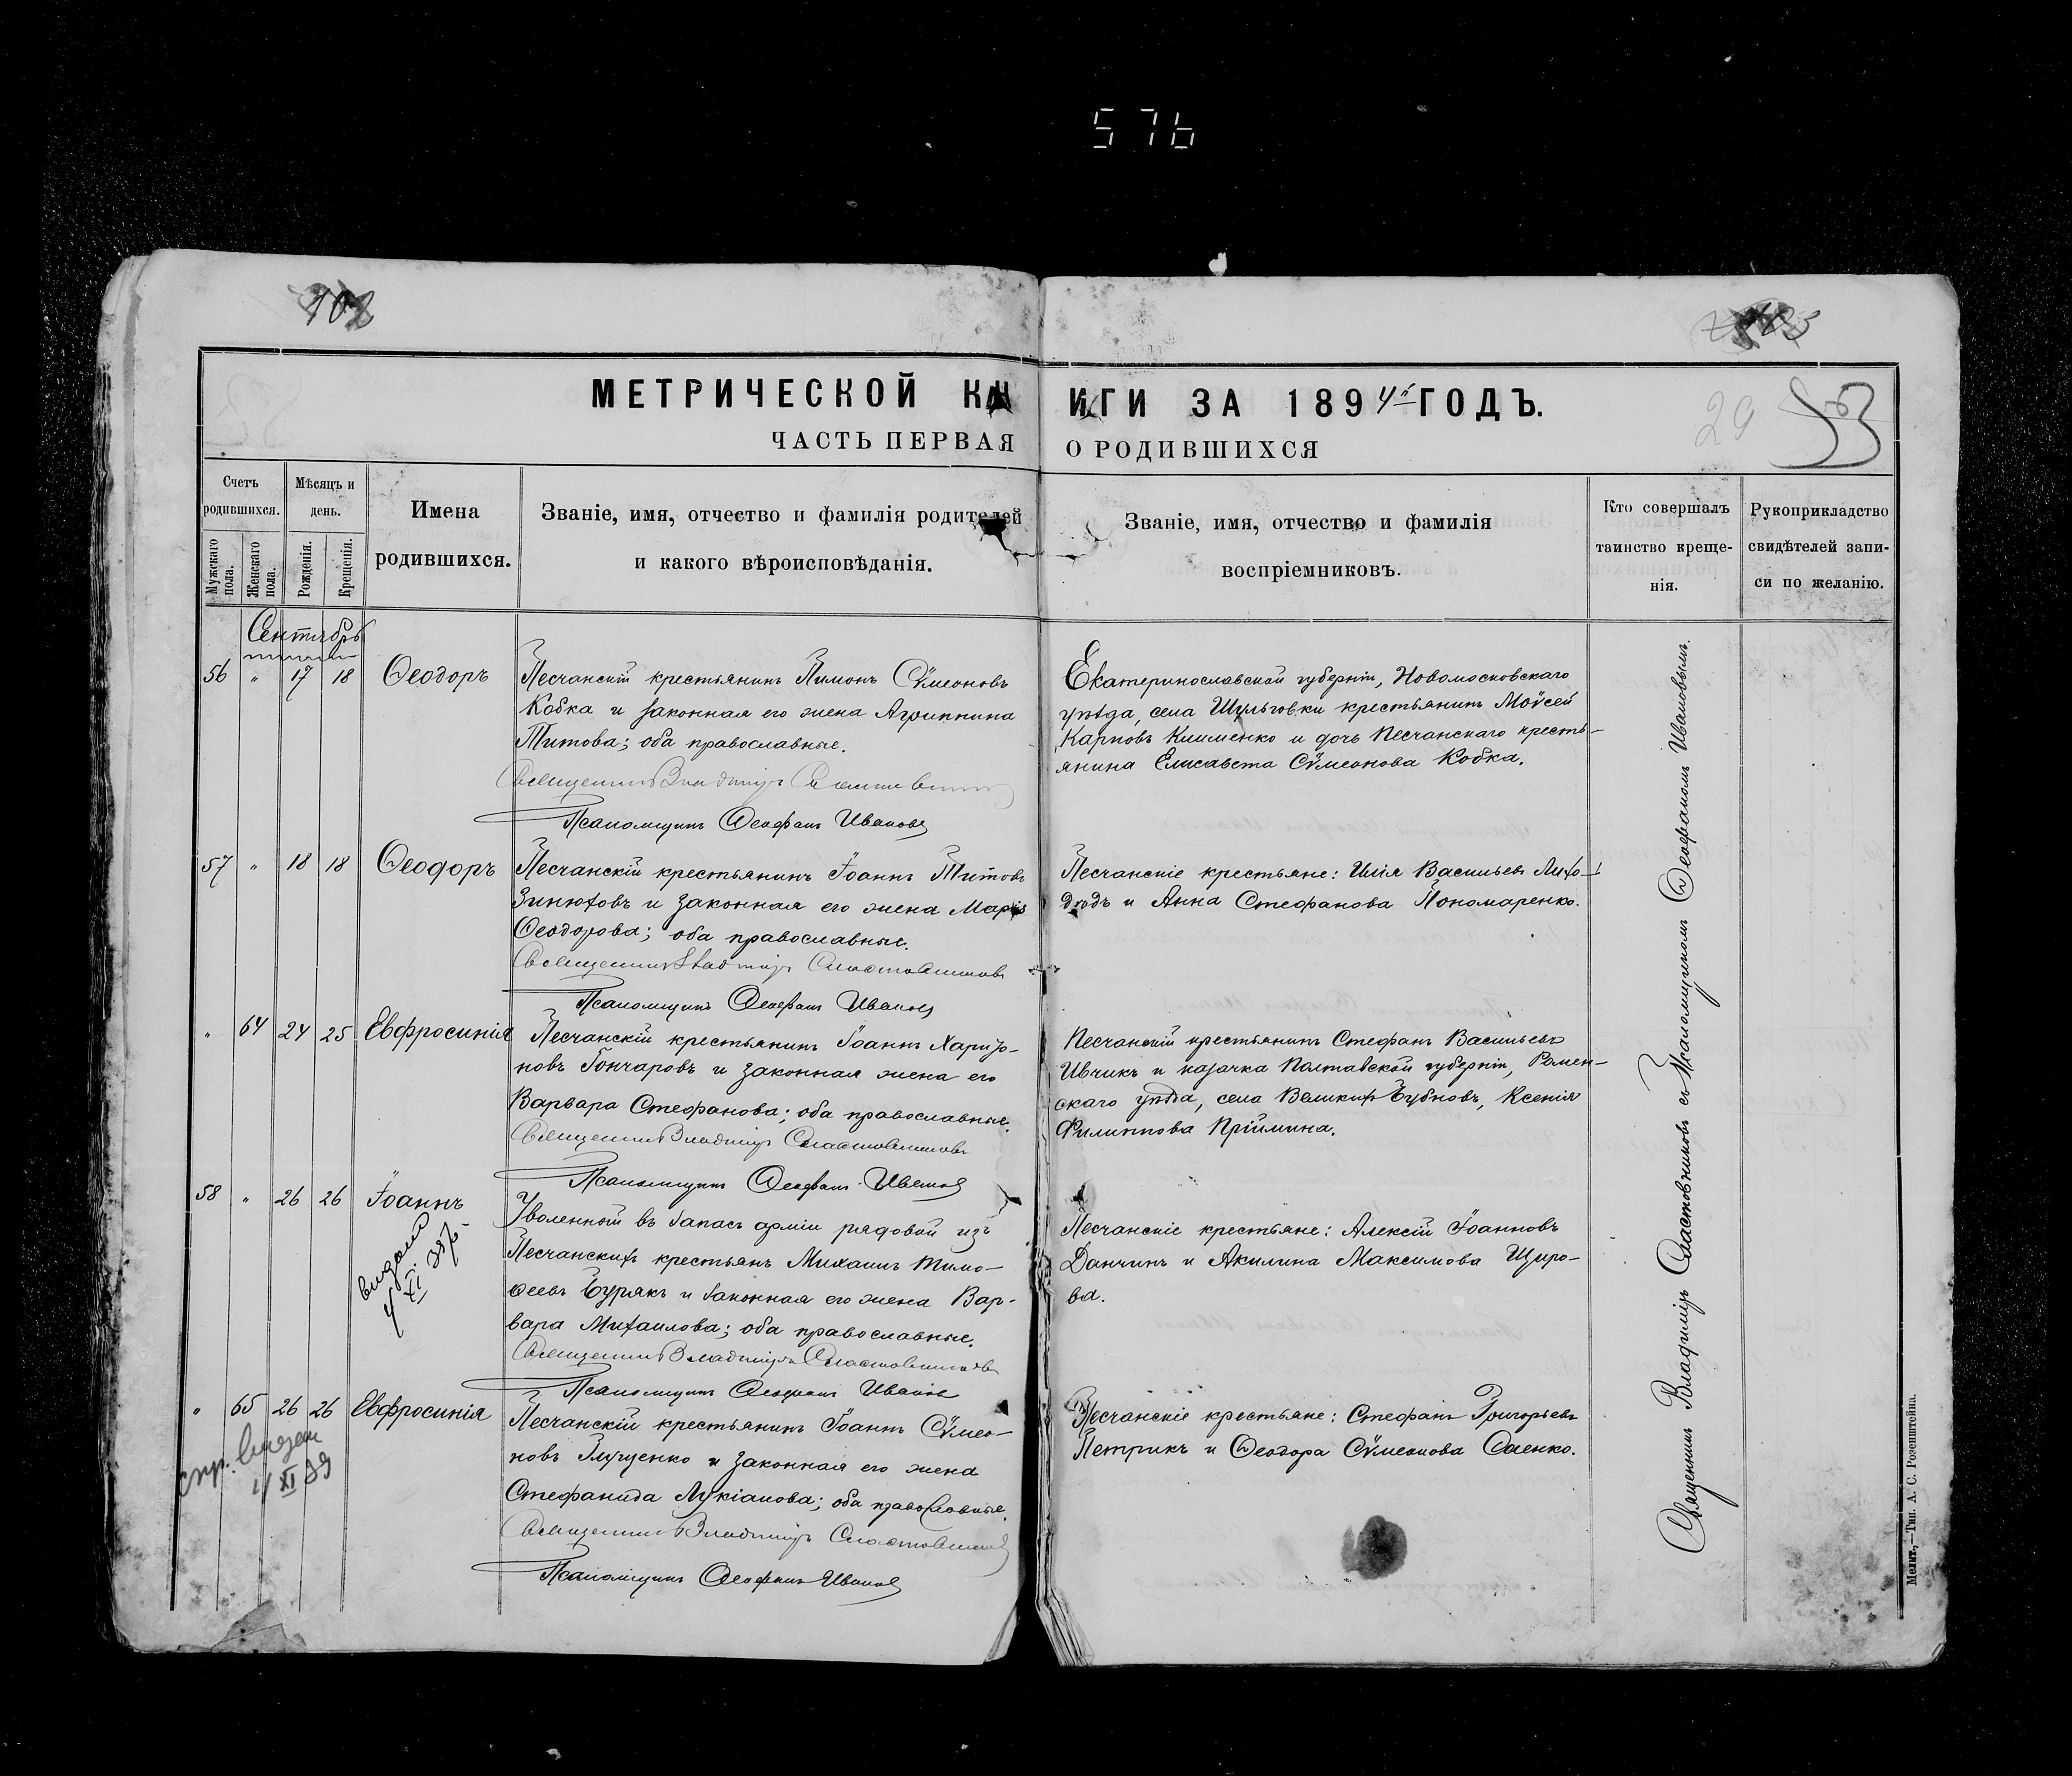 576
МЕТРИЧЕСКОЙ КН ИГИ ЗА 1894й ГОДЪ.
29 53
ЧАСТЬ ПЕРВАЯ О РОДИВШИХСЯ
Счетъ родившихся.
Мѣсяцъ и день.
Мужскаго пола.
Женскаго пола.
Рожденія.
Крещенія.
Имена
родившихся.
Званіе, имя, отчество и фамилія родителей
и какого вѣроисповѣданія.
Званіе, имя, отчество и фамилія
воспріемниковъ.
Кто совершалъ
таинство креще-
нія.
Рукоприкладство
свидѣтелей запи-
си по желанію.
Сентябрь
56 " 17 18 Ѳеодоръ
Песчанскій крестьянинъ Пимонъ Сѵмеоновъ
Кобка и законная его жена Агриппина
Титова; оба православные.
Священникъ Владиміръ Сластовниковъ
Псаломщикъ Ѳеофанъ Ивановъ
Екатеринославской губерніи, Новомосковскаго
уѣзда, села Шульговки крестьянинъ Моѵсей
Карповъ Клименко и дочь Песчанскаго кресть-
янина Елисавета Сѵмеонова Кобка.
57 " 18 18 Ѳеодоръ
Песчанскій крестьянинъ Іоаннъ Титовъ
Зинюховъ и законная его жена Марія
Ѳеодорова; оба православные.
Священникъ Владиміръ Сластовниковъ
Псаломщикъ Ѳеофанъ Ивановъ
Песчанскіе крестьяне: Илія Васильевъ Лихо-
дѣдъ и Анна Стефанова Пономаренко.
" 64 24 25 Евфросинія
Песчанскій крестьянинъ Іоаннъ Харито-
новъ Гончаровъ и законная жена его
Варвара Стефанова; оба православные.
Священникъ Владиміръ Сластовниковъ
Псаломщикъ Ѳеофанъ Ивановъ
Песчанскій крестьянинъ Стефанъ Васильевъ
Ивчикъ и казачка Полтавской губерніи, Ромен-
скаго уѣзда, села Великихъ Бубновъ, Ксенія
Филиппова Пріймина.
58 " 26 26 Іоаннъ
Уволенный въ запасъ арміи рядовой изъ
Песчанскихъ крестьянъ Михаилъ Тимо-
ѳеевъ Бурякъ и законная его жена Вар-
вара Михаилова; оба православные.
Священникъ Владиміръ Сластовниковъ
Псаломщикъ Ѳеофанъ Ивановъ
Песчанскіе крестьяне: Алексій Іоанновъ
Данчинъ и Акилина Максимова Щиро-
ва.
" 65 26 26 Евфросинія
спр. выдан
4 XI 39
Песчанскій крестьянинъ Іоаннъ Сѵмео-
новъ Глущенко и законная его жена
Стефанида Лукіанова; оба православные.
Священникъ Владиміръ Сластовниковъ
Псаломщикъ Ѳеофанъ Ивановъ
Песчанскіе крестьяне: Стефанъ Григорьевъ
Петрикъ и Ѳеодора Сѵмеонова Саенко.
Священникъ Владиміръ Сластовниковъ съ Псаломщикомъ Ѳеофаномъ Ивановымъ.
Мелит.,—Тип. А. С. Розенштейна.